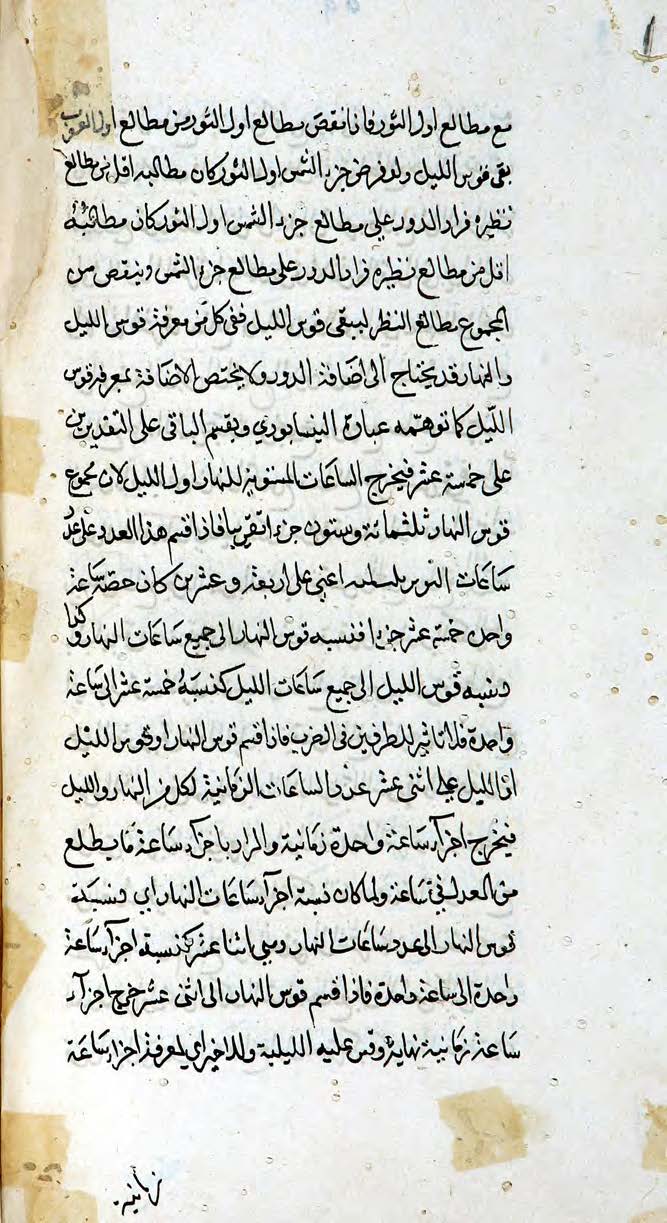 مع مطالع اول الثور فاذا نقص مطالع اول الثور من مطالع اول العقرب
بقى قوس الليل ولو فرض جزء الشمس اول الثور كان مطالبه اقل من مطالع
نظيره فزاد الدور على مطالع جزء الشمس اول الثور كان مطالعه
اقل من مطالع نظيره فزاد الدور على مطالع جزء الشمس وينقص من
المجموع مطالع النظر ليبقى قوس الليل ففى كل من معرفة قوس الليل
والنهار قد يحتاج الى اضافة الدور ولا يختص الاضافة بمعرفة قوس
الليل كما توهمه عبارة النيسابوري ويقسم الباقى على التقديرين
على خمسة عشر فيخرج الساعات المستوية للنهار او الليل لان مجموع
قوس النهار ثلثمائة وستون جزء اتقريبا فاذا قسم هذا العدد على عدد
ساعات اليوم بليلته اعنى على اربعة وعشرين كان حصة ساعة
واحدة خمسة عشر جزءا فنسبة قوس النهار الى جميع ساعات النهار وكذا
نسبة قوس الليل الى جميع ساعات الليل كنسبة خمسة عشر الى ساعة
واحدة فلا تاثير للطرفين فى الضرب فاذا قسم قوس النهار او قوس الليل
او الليل على اثنى عشر عدد الساعات الزمانية لكل من النهار والليل
فيخرج اجزآء ساعة واحدة زمانية والمراد باجزآء ساعة ما يطلع
من المعدل فى ساعة ولما كان نسبة اجزآء ساعات النهار اي نسبة
قوس النهار الى عدد ساعات النهار وهى اثنا عشر كنسبة اجزآء ساعة
واحدة الى ساعة واحدة فاذا قسم قوس النهار الى اثنى عشر خرج اجزآء
ساعة زمانية نهاية وقس عليه الليلية وللاخير اي لمعرفة اجزاء ساعة
زمانية